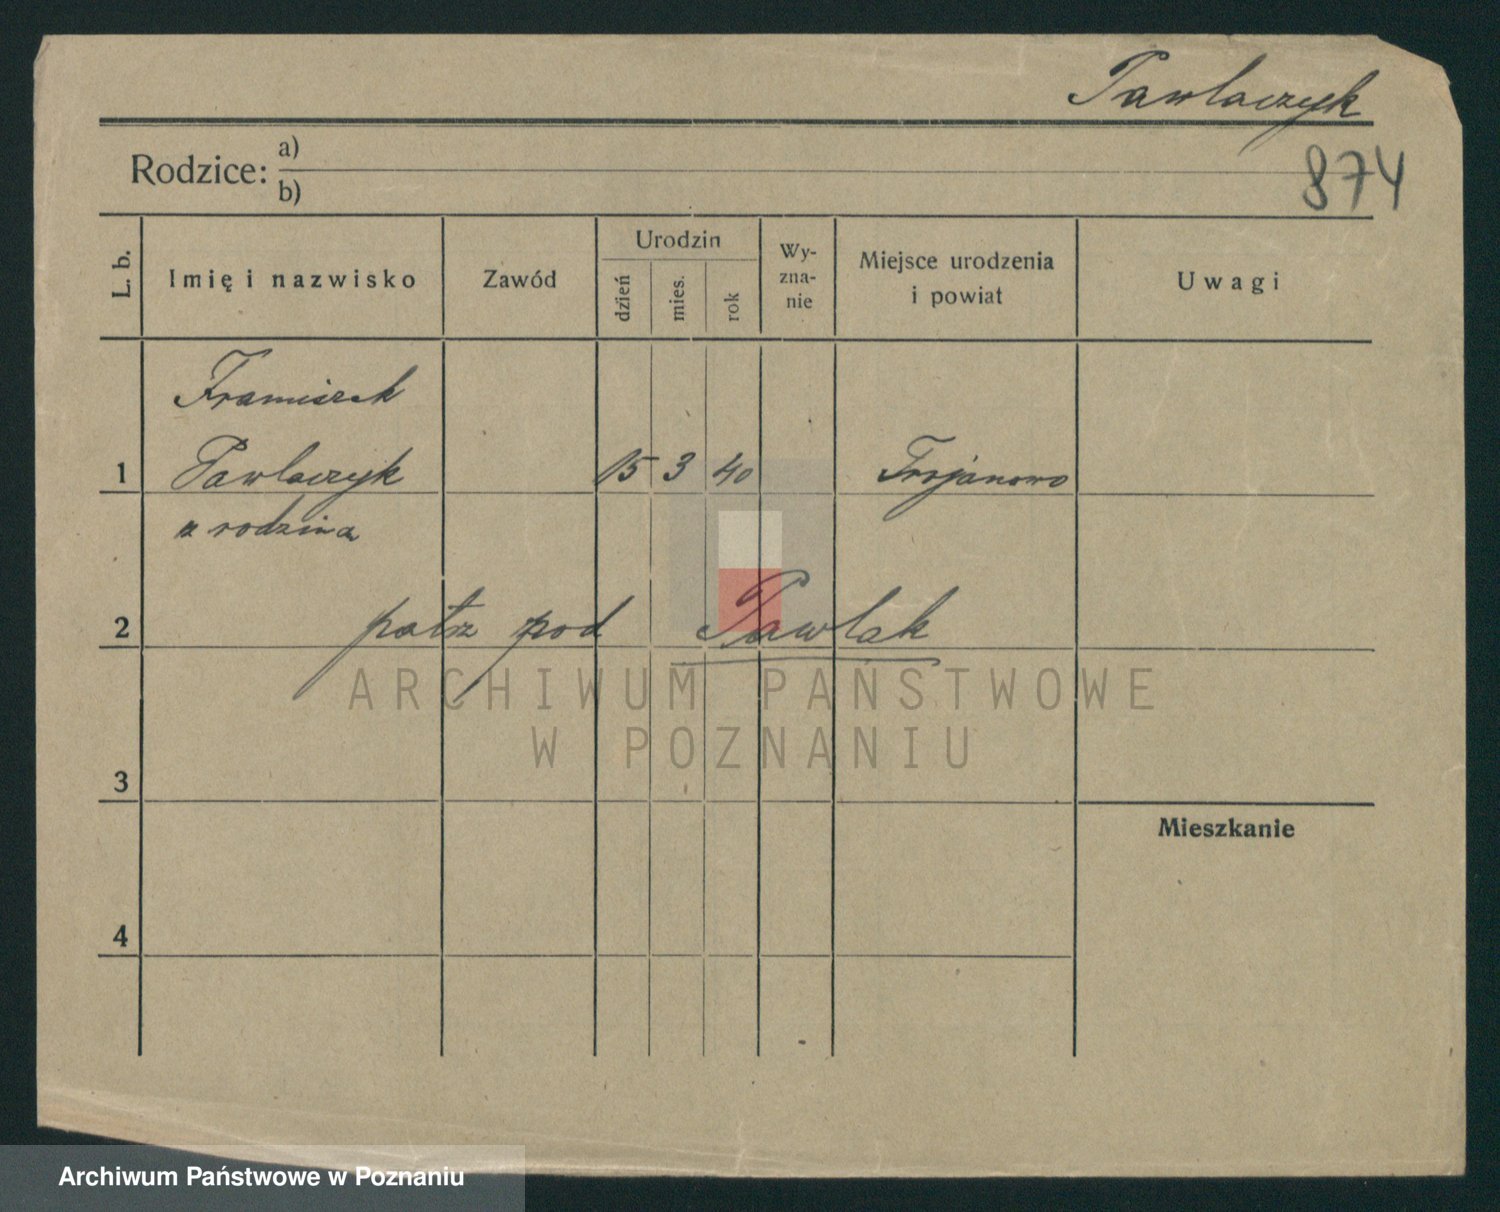 Pawlaczyk
874
Rodzice: a)
b)
L. b.
Imię i nazwisko
Zawód
Urodzin
dzień
mies.
rok
Wy-
zna-
nie
Miejsce urodzenia
i powiat
Uwagi
Franciszek
1 Pawlaczyk 15 3 40 Trojanowo
z rodziną
2 patrz pod Pawlak
ARCHIWUM PAŃSTWOWE
W POZNANIU
3
Mieszkanie
4
Archiwum Państwowe w Poznaniu